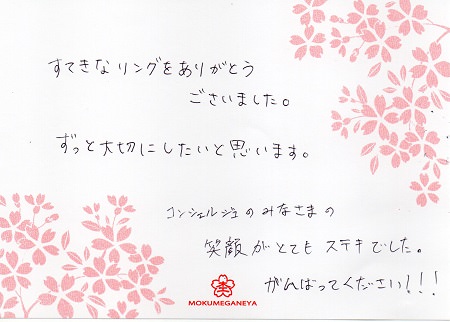 すてきなリングをありがとう
ございました。
ずっと大切にしたいと思います。
コンシェルジュのみなさまの
笑顔がとてもステキでした。
がんばってください!!!
MOKUMEGANEYA